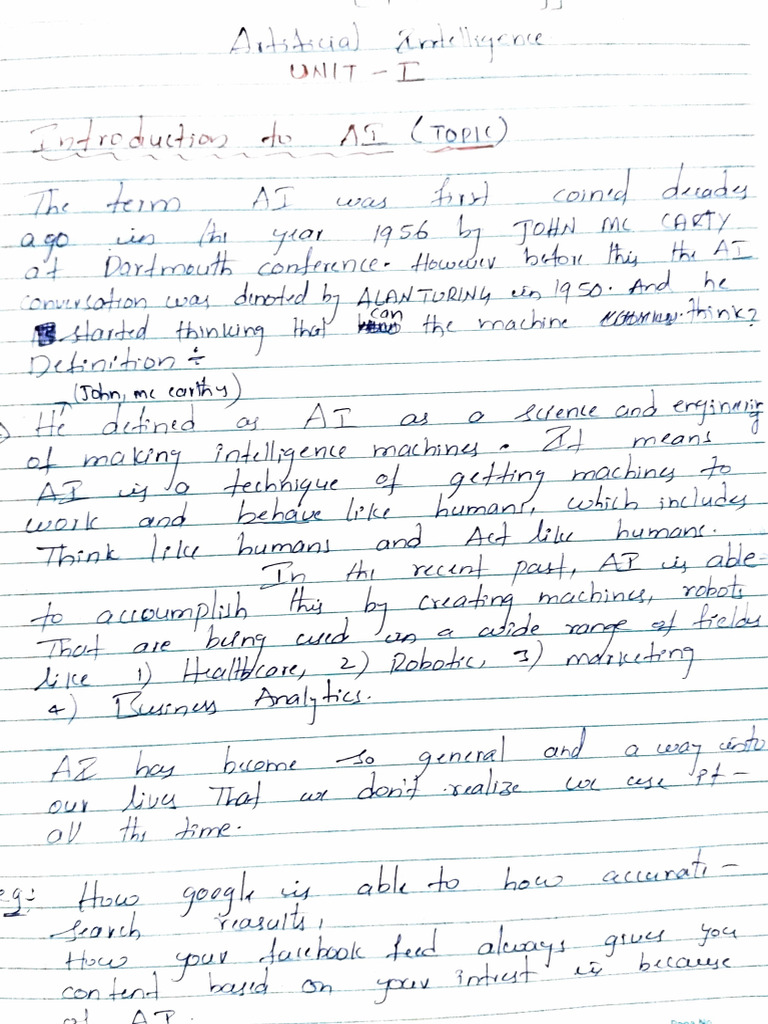 Artificial Intelligence
UNIT - I
Introduction to AI (TOPIC)
The term AI was first coined decades
ago in the year 1956 by JOHN MC CARTY
at Dartmouth conference. However before this the AI
conversation was denoted by ALAN TURING in 1950. And he
started thinking that can the machine think?
Definition ÷
(John, mc carthy)
He defined as AI as a science and enginnring
of making intelligence machines. It means
AI is a technique of getting machines to
work and behave like humans, which includes
Think like humans and Act like humans.
In the recent past, AI is able-
to accoumplish this by creating machines, robots
That are being used in a wide range of fields
like 1) Healthcare, 2) Robotic, 3) marketing
4) Business Analytics.
AI has become so general and a way into
our lives That we don't realize we use it -
all the time.
eg: How google is able to how accurati -
search reasults,
How your facebook feed always gives you
content based on your intrest is because
of AI.